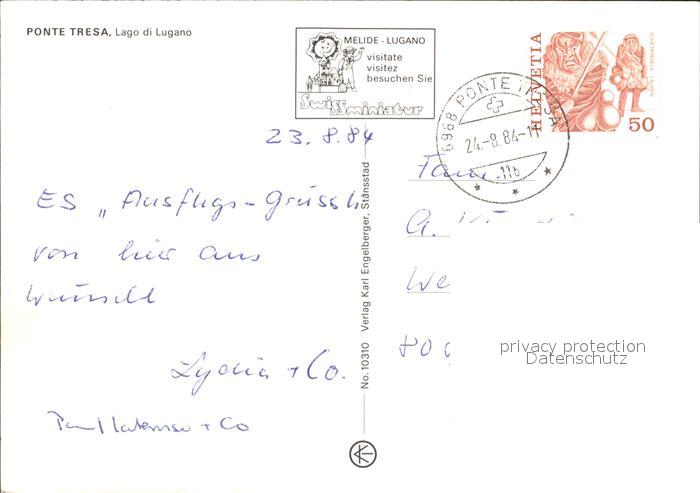 PONTE TRESA, Lago di Lugano
MELIDE - LUGANO
visitate
visitez
besuchen Sie
Swissminiatur
6988 PONTE TRESA
24.-8.84-11
11b
HELVETIA
50
23.8.84
ES „Ausflugs-Grüssli
von hier aus
wünscht
Lydia + Co.
+ Co
No. 10310 Verlag Karl Engelberger, Stansstad
Fam.
G.
We
800
privacy protection
Datenschutz